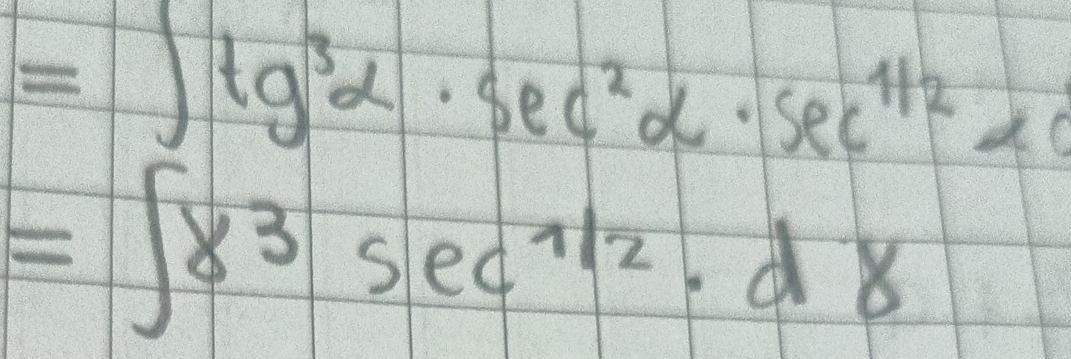 = ∫ tg³α · sec²α · sec^1/2 α d
= ∫ γ³ sec^1/2 · d γ